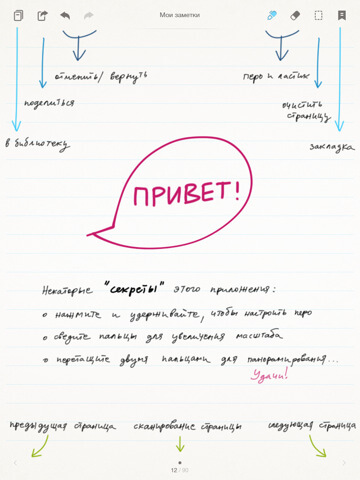 Мои заметки
отменить/вернуть
перо и ластик
поделиться
очистить
страницу
в библиотеку
закладка
ПРИВЕТ!
Некоторые "секреты" этого приложения:
нажмите и удерживайте, чтобы настроить перо
сведите пальцы для увеличения масштаба
перетащите двумя пальцами для панорамирования...
Удачи!
предыдущая страница сканирование страницы следующая страница
12 / 90